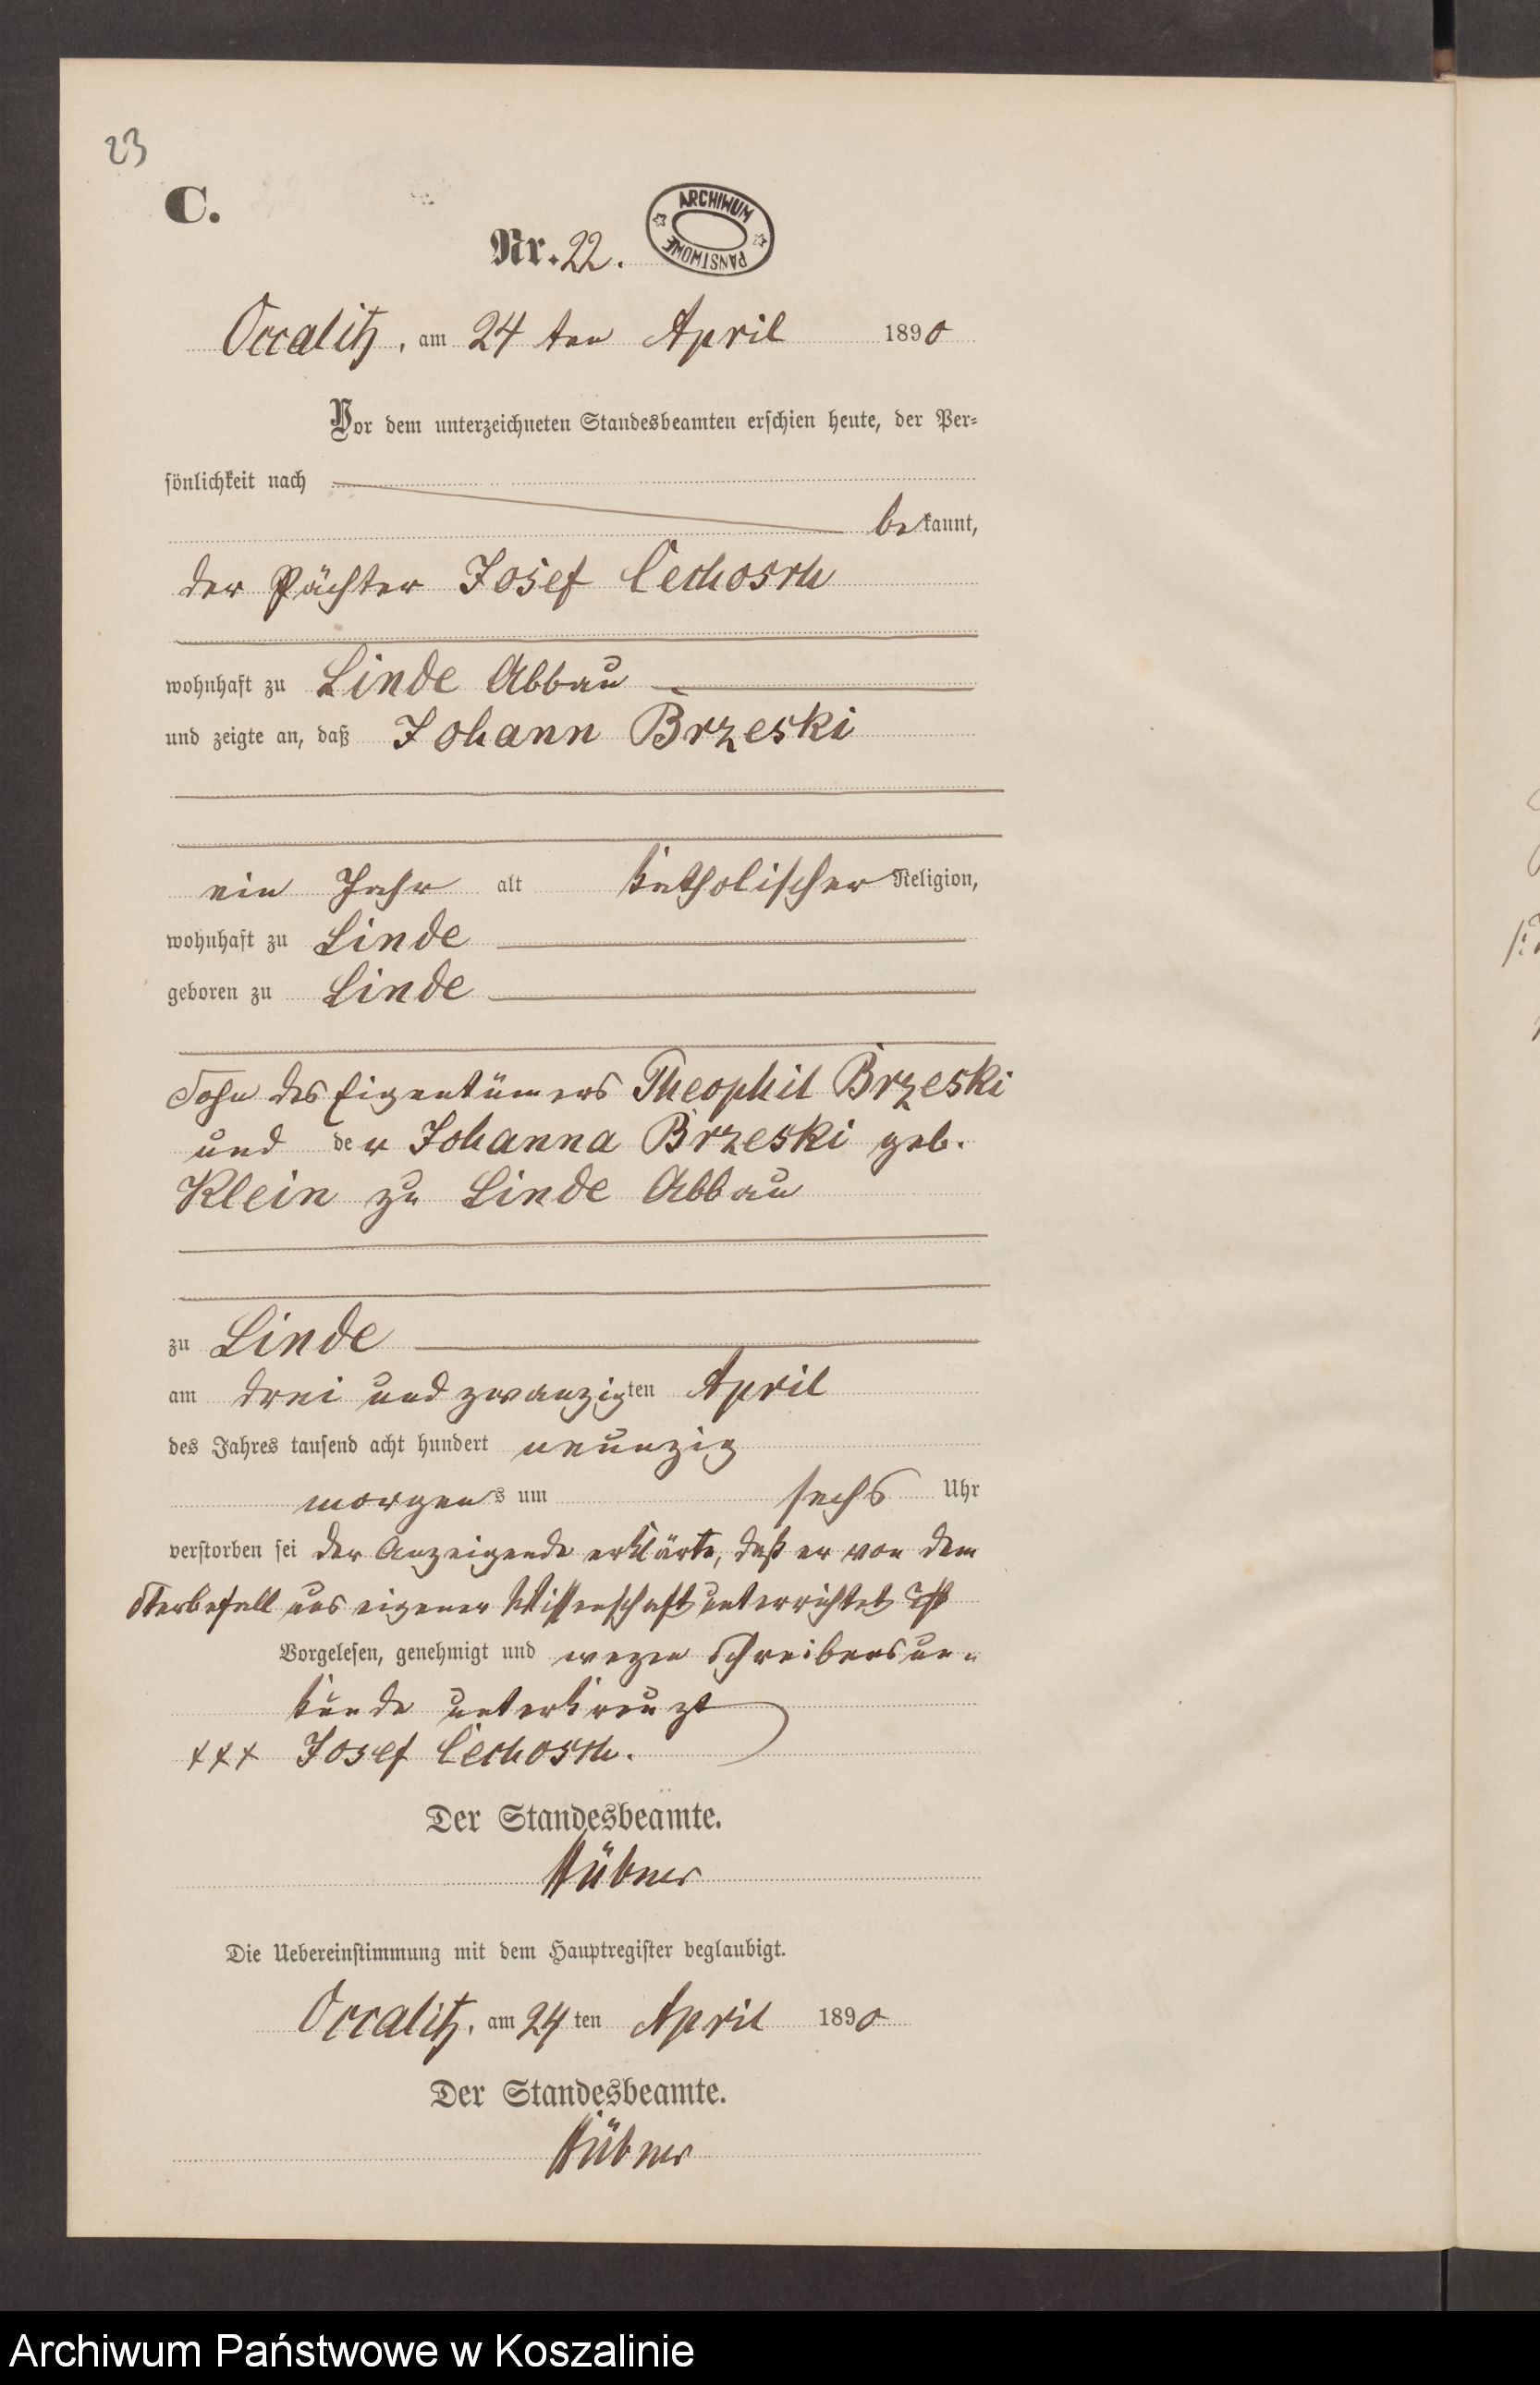 23
C.
Nr. 22.
ARCHIWUM
PAŃSTWOWE
Occalitz, am 24 ten April 1890
Vor dem unterzeichneten Standesbeamten erschien heute, der Per-
sönlichkeit nach
bekannt,
der Pächter Josef Cechosch
wohnhaft zu Linde Abbau
und zeigte an, daß Johann Brzeski
ein Jahr alt katholischer Religion,
wohnhaft zu Linde
geboren zu Linde
Sohn des Eigentümers Theophil Brzeski
und der Johanna Brzeski geb.
Klein zu Linde Abbau
zu Linde
am drei und zwanzigten April
des Jahres tausend acht hundert neunzig
morgens um sechs Uhr
verstorben sei der Anzeigende erklärte, daß er von dem
Sterbefall aus eigener Wissenschaft unterrichtet ist
Vorgelesen, genehmigt und wegen Schreibensun-
kunde unterkreuzt
+++ Josef Cechosch.
Der Standesbeamte.
Hübner
Die Uebereinstimmung mit dem Hauptregister beglaubigt.
Occalitz, am 24 ten April 1890
Der Standesbeamte.
Hübner
Archiwum Państwowe w Koszalinie